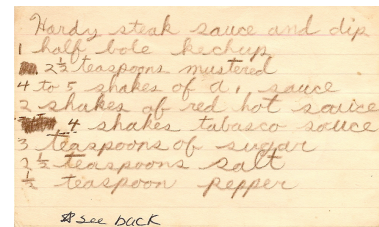 Hardy steak sauce and dip
1 half bole kechup
2½ teaspoons mustered
4 to 5 shakes of a, sauce
2 shakes of red hot sauce
4 shakes tabasco sauce
3 teaspoons of sugar
2 ½ teaspoons salt
½ teaspoon pepper
see back